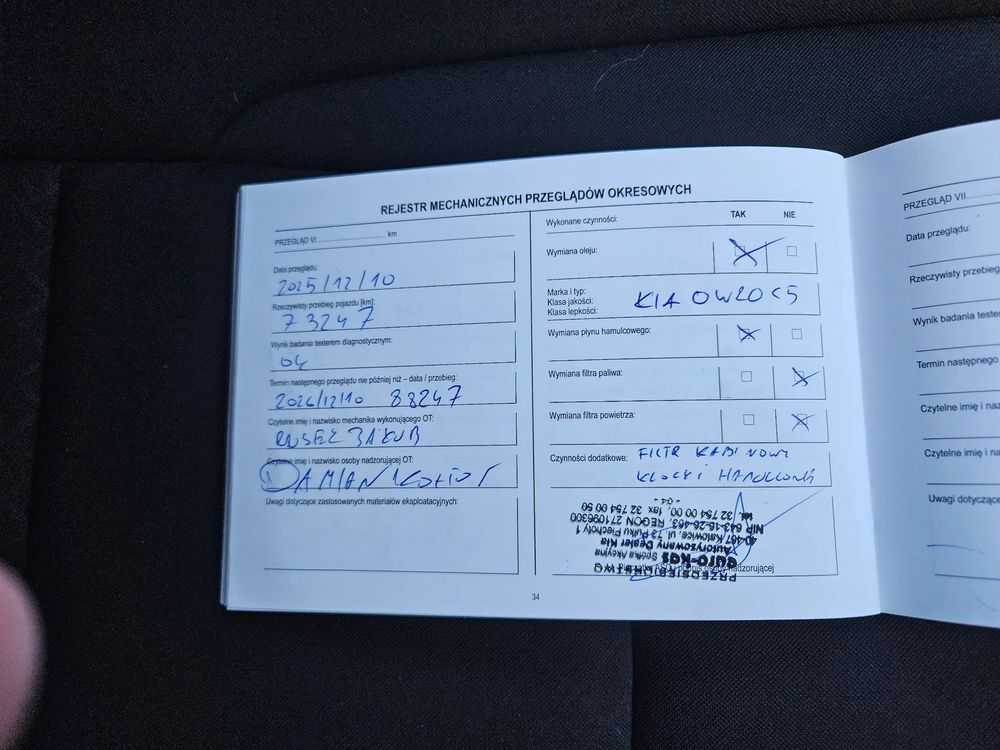 REJESTR MECHANICZNYCH PRZEGLĄDÓW OKRESOWYCH
PRZEGLĄD VI.......................... km
Data przeglądu:
2025/12/10
Rzeczywisty przebieg pojazdu [km]:
73247
Wynik badania testerem diagnostycznym:
Termin następnego przeglądu nie później niż – data / przebieg:
2026/12/10 88247
Czytelne imię i nazwisko mechanika wykonującego OT:
JAKUB
Czytelne imię i nazwisko osoby nadzorującej OT:
DAMIAN
Uwagi dotyczące zastosowanych materiałów eksploatacyjnych:
Wykonane czynności: TAK NIE
Wymiana oleju:
Marka i typ:
Klasa jakości:
Klasa lepkości:
KIA 0W20 C5
Wymiana płynu hamulcowego:
Wymiana filtra paliwa:
Wymiana filtra powietrza:
Czynności dodatkowe: FILTR KABINOWY
KLOCKI
PRZEDSIĘBIORSTWO
auto-kas Spółka Akcyjna
Autoryzowany Dealer Kia
40-467 Katowice, ul. 73 Pułku Piechoty 1
NIP 643-16-26-463, REGON 271096300
tel. 32 754 00 00, fax 32 754 00 50
- 04 -
osoby nadzorującej
34
PRZEGLĄD VII
Data przeglądu:
Rzeczywisty przebieg
Wynik badania testere
Termin następnego
Czytelne imię i nazw
Czytelne imię i
Uwagi dotyczące